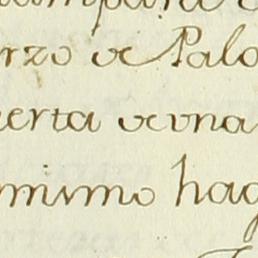 ampana
erzo de Palo
uerta de una
mimo hag